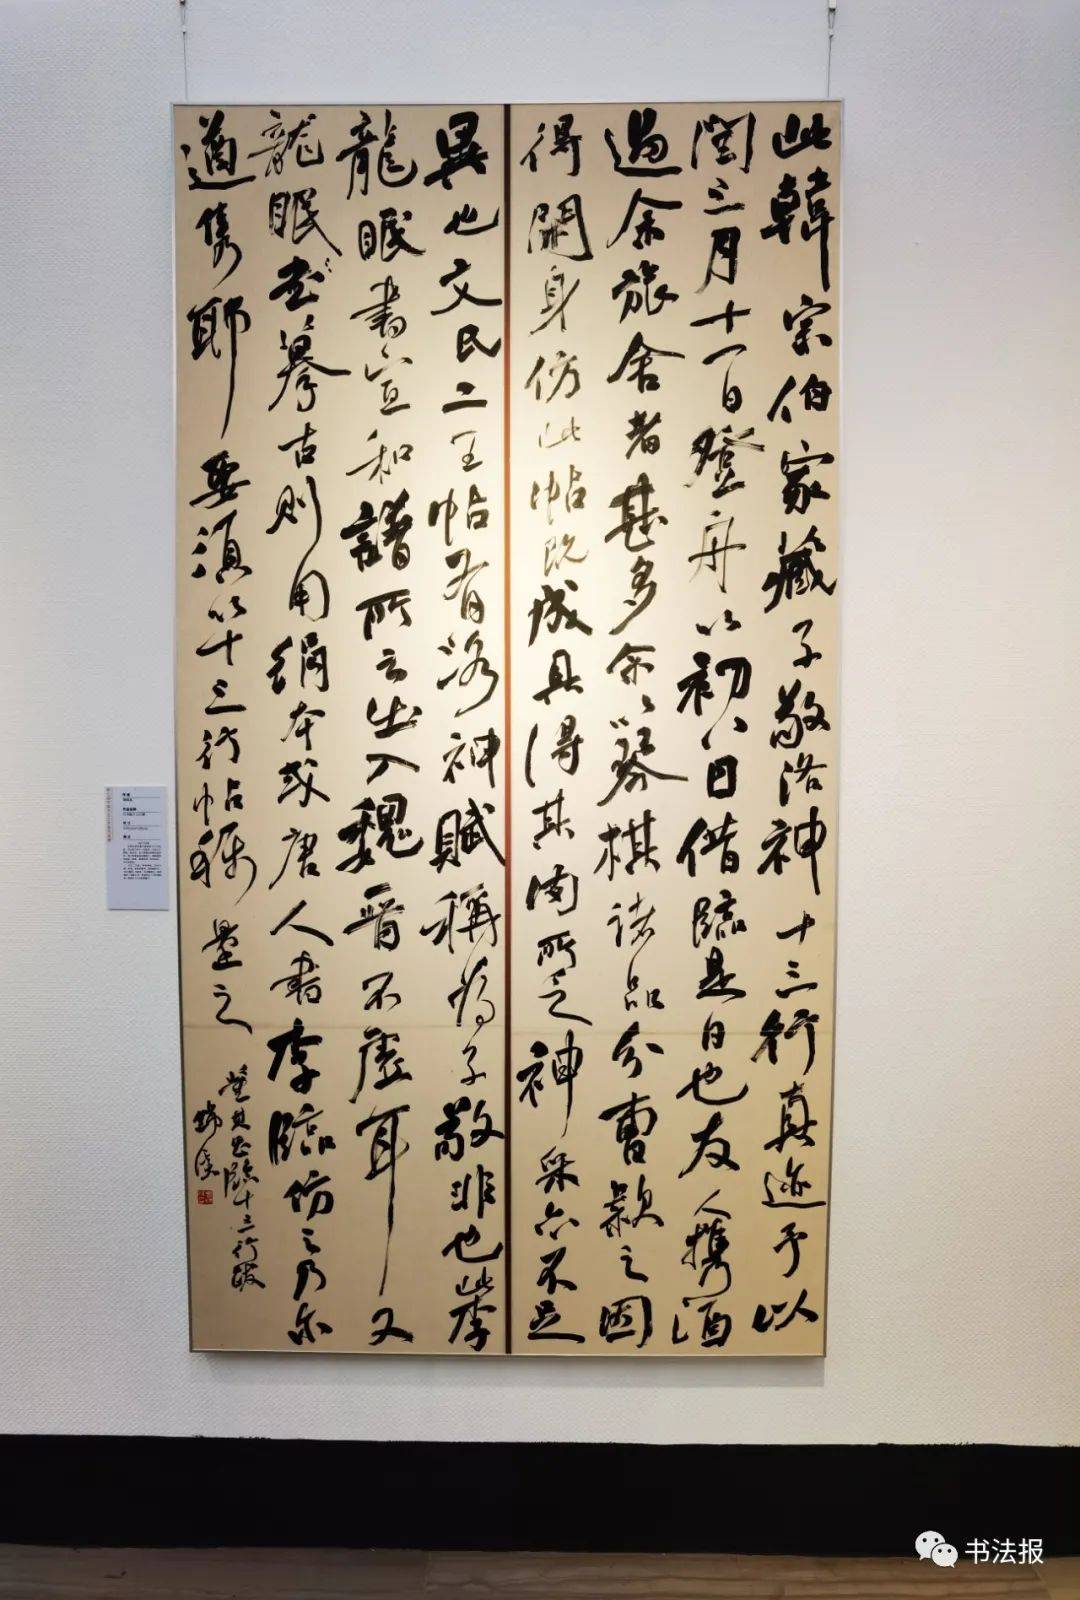 此韓宗伯家藏子敬洛神十三行真迹予以
閏三月十一日登舟以初八日借臨是日也友人攜酒
過余旅舍者甚多余以琴棋諸品分曹款之因
得閒身仿此帖既成具得其肉所乏神采亦不足
異也文氏二王帖有洛神賦稱為子敬非也此李
龍眠書宣和譜所云出入魏晉不虛耳又
龍眠書摹古則用絹本或唐人書李臨仿之乃爾
遒雋耶要須以十三行帖稱量之
董其昌臨十三行跋
书法报